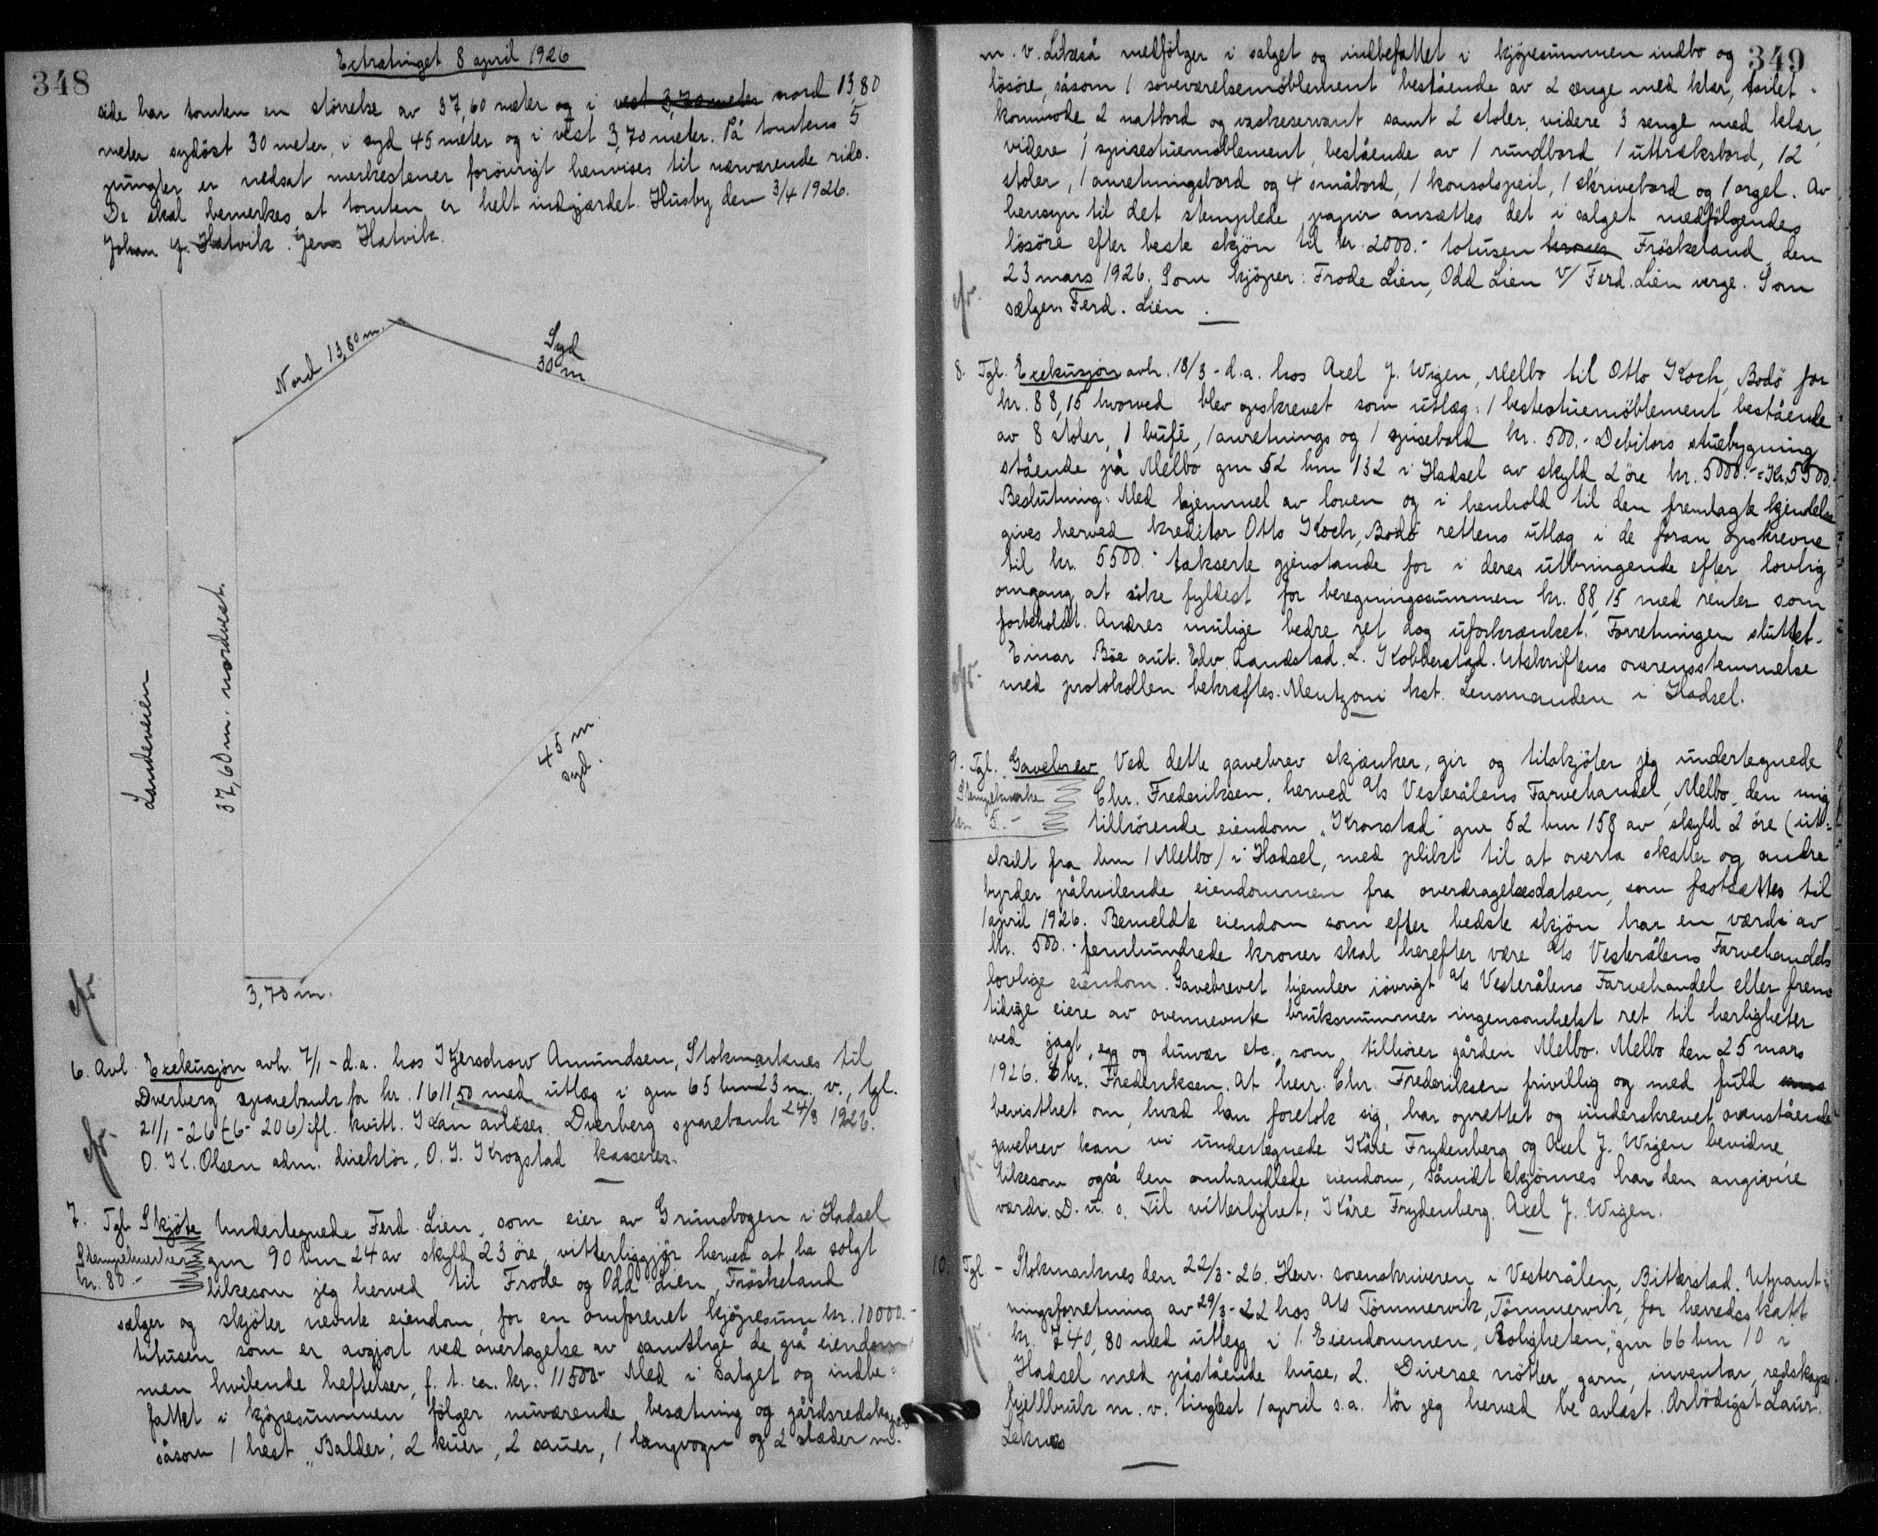 348
Extratinget 8 april 1926
side har tomten en störrelse av 37,60 meter og i vest 3,70 meter nord 13,80
meter sydöst 30 meter, i syd 45 meter og i vest 3,70 meter. På tomtens 5
pungter er nedsat merkestener forövrigt henvises til nærværende rids.
De skal bemerkes at tomten er helt indgjærdet. Husby den 3/4 1926.
Johan J. Hatvik. Jens Hatvik.
Nord 13,80 m.
Syd
30 m
Landeveien
37,60 m. nordvest.
45 m
syd.
3,70 m.
6. Avl. Exekusjon avh. 7/1 - d.a. hos Kjerschow Amundsen, Stokmarknes til
Dverberg sparebank for kr. 1611,50 med utlæg i gnr 65 bnr 23 m. v., tgl.
21/1-26 (6-206) ifl. kvitt. Kan avlöses. Dverberg sparebank 24/3 1926.
O. K. Olsen adm. direktör, O. J. Krogstad kasserer.
7. Tgl. Skjöte Undertegnede Ferd. Lien, som eier av Grunsbogen i Hadsel
Stempelmerker
kr. 80.-
gnr 90 bnr 24 av skyld 23 öre, vitterliggjör herved at ha solgt
likesom jeg herved til Frode og Odd Lien, Fröskeland
sælger og skjöter nevnte eiendom, for en omforenet kjöpesum kr. 10000.-
titusen som er avgjort ved overtagelse av samtlige de på eiendom-
men hvilende heftelser, f. t. ca. kr. 11500- Med i salget og indbe=
fattet i kjöpesummen fölger nuværende besætning og gårdsredskaper
såsom 1 hest "Balder", 2 kuer, 2 sauer, 1 langvogn og 2 slæder m.
349
m. v. Likeså medfölger i salget og indbefattet i kjöpesummen indbo og
lösöre, såsom 1 soveværelsemöblement bestående av 2 senge med klær, toilet-
kommode 2 natbord og vaskeservant samt 2 stoler, videre 3 senge med klær,
videre 1 spisestuemöblement, bestående av 1 rundbord, 1 uttræksbord, 12
stoler, 1 anretningsbord og 4 småbord, 1 konsolspeil, 1 skrivebord og 1 orgel. Av
hensyn til det stemplede papir ansættes det i salget medfölgende
lösöre efter beste skjön til kr. 2000.- totusen kroner Fröskeland den
23 mars 1926. Som kjöper: Frode Lien, Odd Lien v/ Ferd. Lien verge. Som
sælger Ferd. Lien.
8. Tgl. Exekusjon avh. 18/3 - d.a. hos Axel J. Wigen, Melbo til Otto Koch, Bodö for
kr. 88,15 hvorved blev opskrevet som utlæg: 1 bestestuemöblement bestående
av 8 stoler, 1 bufé, 1 anretnings og 1 spisebord kr. 500.- Debitors stuebygning
stående på Melbo gnr 52 bnr 132 i Hadsel av skyld 2 öre kr. 5000.- = Kr. 5500.
Beslutning: Med hjemmel av loven og i henhold til den fremlagte kjendelse
gives herved kreditor Otto Koch, Bodö rettens utlæg i de foran opskrevne
til kr. 5500.- takserte gjenstande for i deres utbringende efter lovlig
omgang at söke fyldest for beregningssummen kr. 88,15 med renter som
forbeholdt. Andres mulige bedre ret dog uforkrænket. Forretningen sluttet.
Einar Böe aut. Edv. Sandstad. L. Kobberstad. Utskriftens overensstemmelse
med protokollen bekræftes. Mentzoni kst. Lensmanden i Hadsel.
9. Tgl. Gavebrev Ved dette gavebrev skjænker, gir og tilskjöter jeg undertegnede
Stempelmerke
kr. 5.-
Chr. Frederiksen, herved A/s Vesterålens Farvehandel, Melbo, den mig
tilhörende eiendom "Kronstad" gnr 52 bnr 158 av skyld 2 öre (ut=
skilt fra bnr 1 Melbo) i Hadsel, med plikt til at overta skatter og andre
byrder påhvilende eiendommen fra overdragelsesdatoen, som fastsættes til
1 april 1926. Bemeldte eiendom som efter bedste skjön har en værdi av
kr. 500.- femhundrede kroner skal herefter være A/s Vesterålens Farvehandels
lovlige eiendom. Gavebrevet hjemler iövrigt A/s Vesterålens Farvehandel eller frem-
tidige eiere av ovennevnte bruksnummer ingensomhelst ret til herligheter
ved jagt, egg og dunvær etc. som tilhörer gården Melbo. Melbo den 25 mars
1926. Chr. Frederiksen. At herr Chr. Frederiksen frivillig og med fuld
bevissthet om, hvad han foretok sig, har oprettet og underskrevet ovenstående
gavebrev kan vi undertegnede Kåre Frydenberg og Axel J. Wigen bevidne,
likesom også den omhandlede eiendom, såvidt skjönnes har den angivne
værdi. D. u. s. Til vitterlighet: Kåre Frydenberg. Axel J. Wigen.
10. Tgl. - Stokmarknes den 22/3-26. Herr. sorenskriveren i Vesterålen, Bitterstad. Utpant-
ningsforretning av 29/3-22 hos A/s Tömmervik, Tömmervik, for herredsskatt
kr. 740,80 med utlegg i 1. Eiendommen "Boligheten", gnr 66 bnr 10 i
Hadsel med påstående huse, 2. Diverse nötter, garn, inventar, redskaper
hjellbruk m. v. tinglest 1 april s.a. tör jeg herved be avlest. Arbödigst Laur.
Leknes